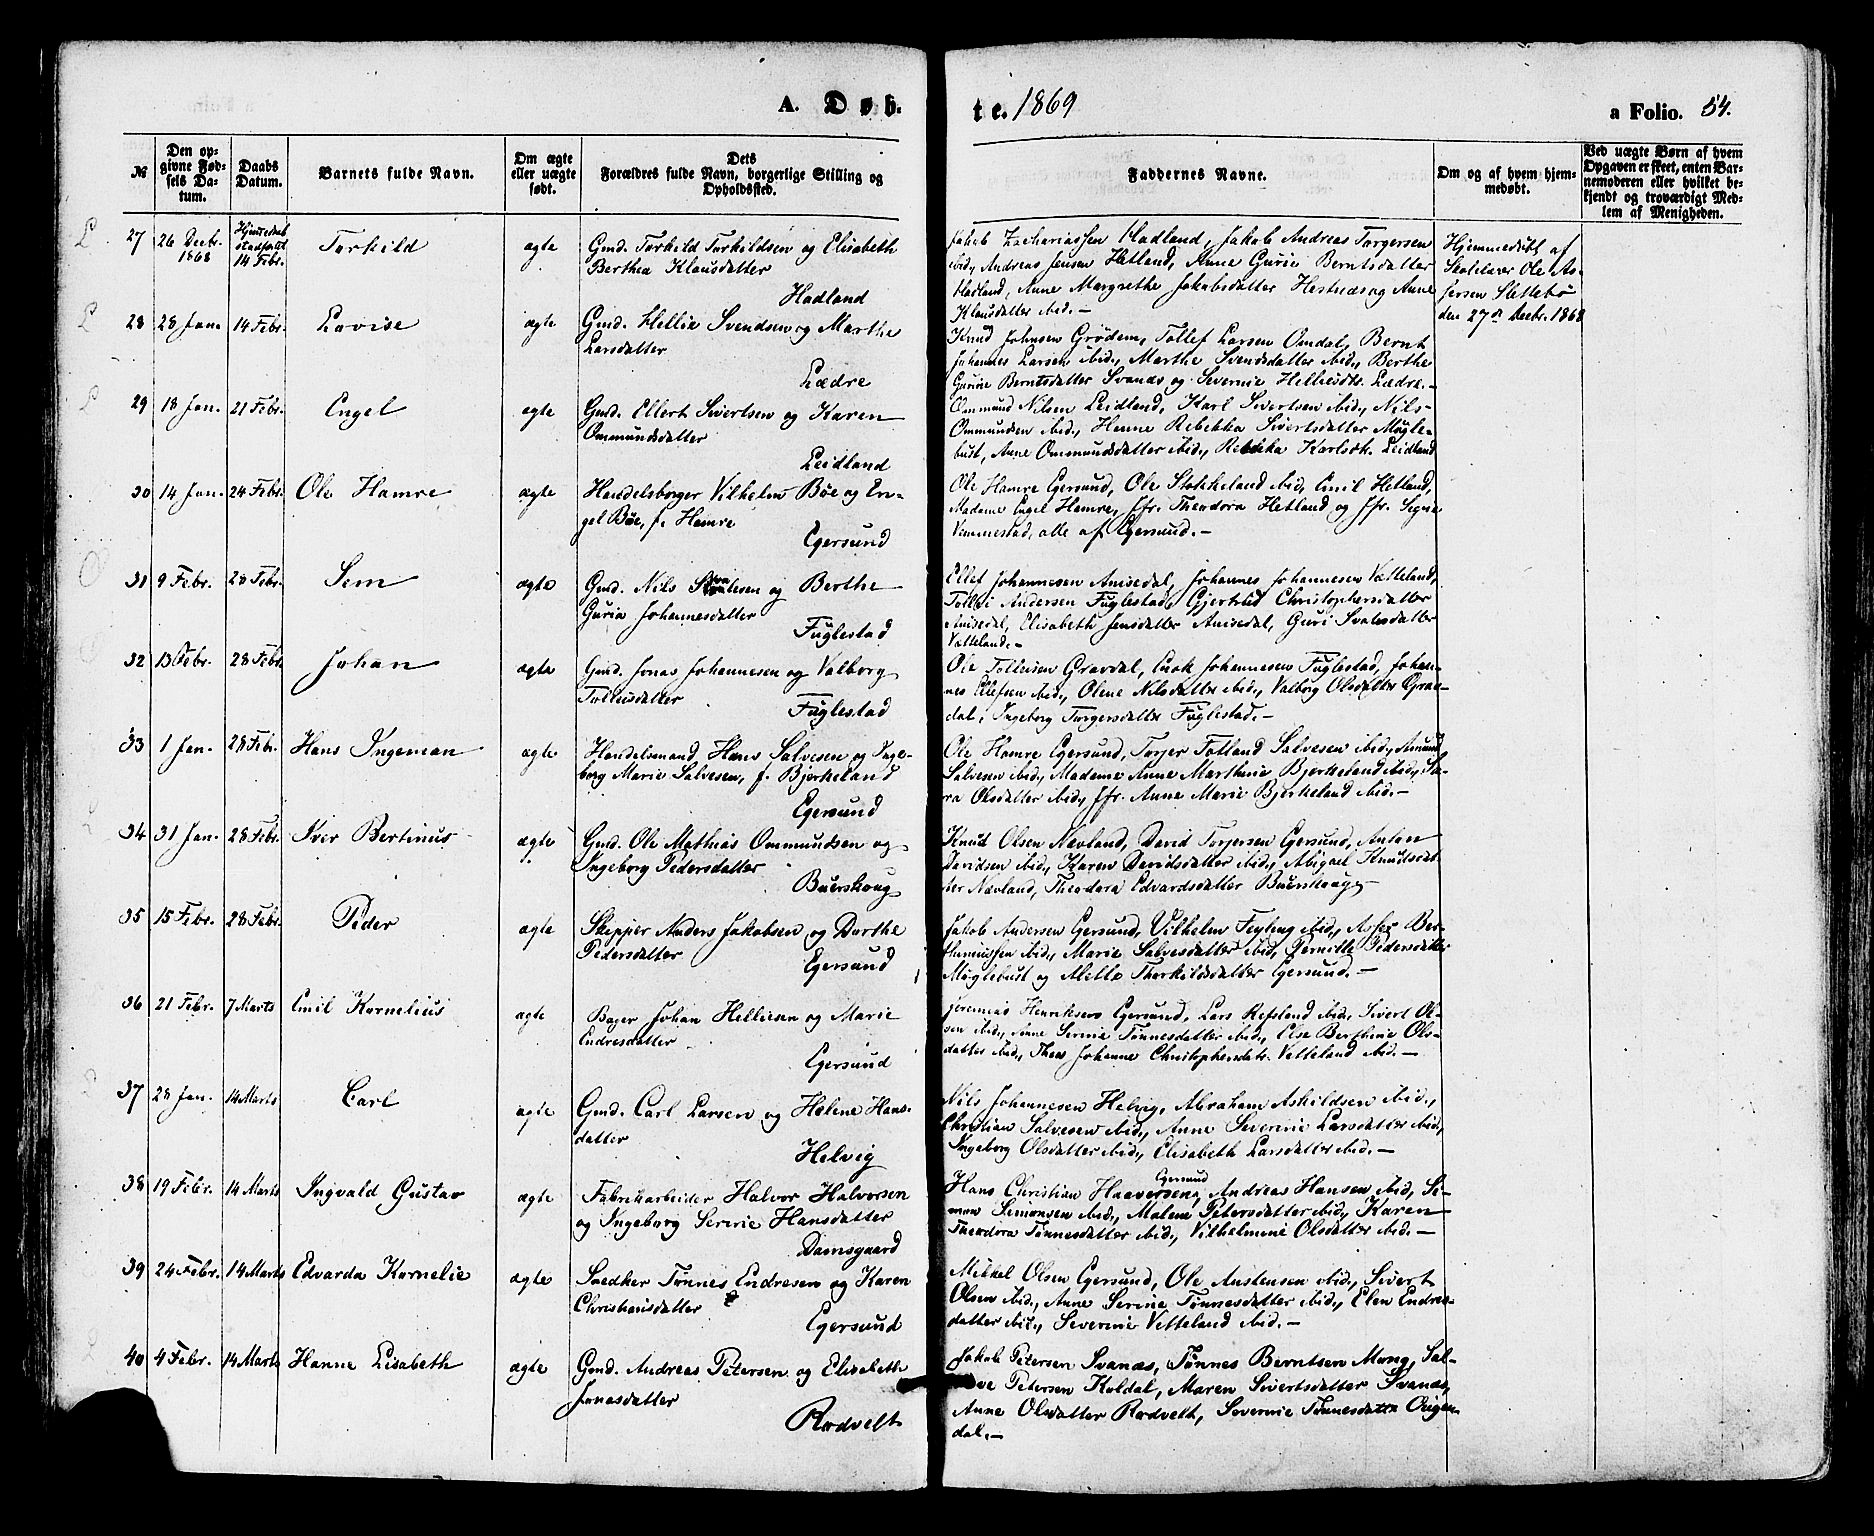 A. Døb-
te. 1869
a Folio. 54.
№ Den opgivne Fødsels Datum. Daabs Datum. Barnets fulde Navn. Om ægte eller uægte født. Dets Forældres fulde Navn, borgerlige Stilling og Opholdssted.
Faddernes Navne. Om og af hvem hjemmedøbt. Ved uægte Børn af hvem Opgaven er skeet, enten Barnemoderen eller hvilket bekjendt og troværdigt Medlem af Menigheden.
27 26 Decbr. 1868 Hjemmedaab stadfæstet 14 Febr. Torkild ægte Gmd. Torkild Torkildsen og Elisabeth
Berthea Klausdatter
Hadland
Jakob Zachariassen Hadland, Jakob Andreas Torgersen
ibid., Andreas Jensen Hetland, Anne Gurie Berntsdatter
Hadland, Anne Margrethe Jakobsdatter Hestnes og Anne
Klausdatter ibid.-
Hjemmedøbt af
Skolelærer Ole As-
sersen Slettebø
den 27de Decbr. 1868
28 28 Jan. 14 Febr. Lovise ægte Gmd. Hellie Svendsen og Marthe
Larsdatter
Lædre
Knud Johnsen Grødem, Tollef Larsen Omdal, Bernt
Johannes Larsen ibid., Marthe Svendsdatter ibid., Berthe
Gurine Berntsdatter Svanæs og Severine Helliesdtr. Lædre.-
29 18 Jan. 21 Febr. Engel ægte Gmd. Ellert Sivertsen og Karen
Ommundsdatter
Leidland
Ommund Nilsen Leidland, Karl Sivertsen ibid., Nils
Ommundsen ibid., Hanne Rebekka Sivertsdatter Møgle-
bust, Anne Ommundsdatter ibid., Rebekka Karlsdtr. Leidland
30 14 Jan. 24 Febr. Ole Hamre ægte Handelsborger Vilhelm Bøe og En-
gel Bøe, f. Hamre
Egersund
Ole Hamre Egersund, Ole Stokkeland ibid., Emil Hetland,
Madame Engel Hamre, Jfr. Theodora Hetland og Jfr. Signe
Vemmestad, alle af Egersund.-
31 9 Febr. 28 Febr. Sem ægte Gmd. Nils Svalesen og Berthe
Guria Johannesdatter
Fuglestad
Ellef Johannesen Anisdal, Johannes Johannesen Vætteland,
Tollef Andersen Fuglestad, Gjertrud Christophersdatter
Anisdal, Elisabeth Jensdatter Anisdal, Guri Svalesdatter
Vætteland.-
32 13 Febr. 28 Febr. Johan ægte Gmd. Jonas Johannesen og Valborg
Tolleisdatter
Fuglestad
Ole Tolleisen Gravdal, Enok Johannesen Fuglestad, Johan-
nes Ellefsen ibid., Olene Nilsdatter ibid., Valborg Olsdatter Grav-
dal, Ingeborg Torgersdatter Fuglestad.-
33 1 Jan. 28 Febr. Hans Ingeman ægte Handelsmand Hans Salvesen og Inge-
borg Marie Salvesen, f. Bjerkeland
Egersund
Ole Hamre Egersund, Torjer Fotland Salvesen ibid., Amund
Salvesen ibid., Madame Anne Marthine Bjerkeland ibid., Sa-
ra Olsdatter ibid., Jfr. Anne Marie Bjerkeland ibid.-
34 31 Jan. 28 Febr. Iver Bertinus ægte Gmd. Ole Mathias Ommundsen og
Ingeborg Pedersdatter
Buerskoug
Knud Olsen Nevland, David Torjersen Egersund, Anton
Davidsen ibid., Karen Davidsdatter ibid., Abigael Knudsdat-
ter Nævland, Theodora Edvardsdatter Buerskoug.-
35 15 Febr. 28 Febr. Peder ægte Skipper Anders Jakobsen og Dorthe
Pedersdatter
Egersund
Jakob Andersen Egersund, Vilhelm Feyling ibid., Asser Ber-
thiniussen ibid., Marie Salvesdatter ibid., Pernille Pedersdatter
Møglebust og Mille Thorkildsdatter Egersund.-
36 21 Febr. 7 Marts Emil Kornelius ægte Bager Johan Helliesen og Marie
Endresdatter
Egersund
Jeremias Henriksen Egersund, Lars Refsland ibid., Sivert Ol-
sen ibid., Anne Serine Tønnesdatter ibid., Else Berthine Ols-
datter ibid., Thea Johanne Christophersdatr. Vetteland ibid.-
37 28 Jan. 14 Marts Carl ægte Gmd. Carl Larsen og Helene Hans-
datter
Helvig
Nils Johannesen Helvig, Abraham Askildsen ibid.,
Christian Salvesen ibid., Anne Severine Larsdatter ibid.,
Ingeborg Olsdatter ibid., Elisabeth Larsdatter ibid.-
38 19 Febr. 14 Marts Ingvald Gustav ægte Fabrikarbeider Halvor Halvorsen
og Ingeborg Serine Hansdatter
Damsgaard
Hans Christian Haaversen Egersund, Andreas Hansen ibid., Si-
mon Simonsen ibid., Malene Petersdatter ibid., Karen
Theodora Tønnesdatter ibid., Vilhelmine Olsdatter ibid.-
39 24 Febr. 14 Marts Edvarda Kornelie ægte Snedker Tønnes Endresen og Karen
Christiansdatter
Egersund
Mikkel Olsen Egersund, Ole Austensen ibid., Sivert
Olsen ibid., Anne Serine Tønnesdatter ibid., Elen Endres-
datter ibid., Severine Vetteland ibid.-
40 4 Febr. 14 Marts Hanne Lisabeth ægte Gmd. Andreas Petersen og Elisabeth
Jonasdatter
Rodvelt
Jakob Petersen Svanæs, Tønnes Berntsen Mong, Sal-
ve Petersen Koldal, Maren Sivertsdatter Svanæs,
Anne Olsdatter Rodvelt, Severine Tønnesdatter Eigen-
dal.-